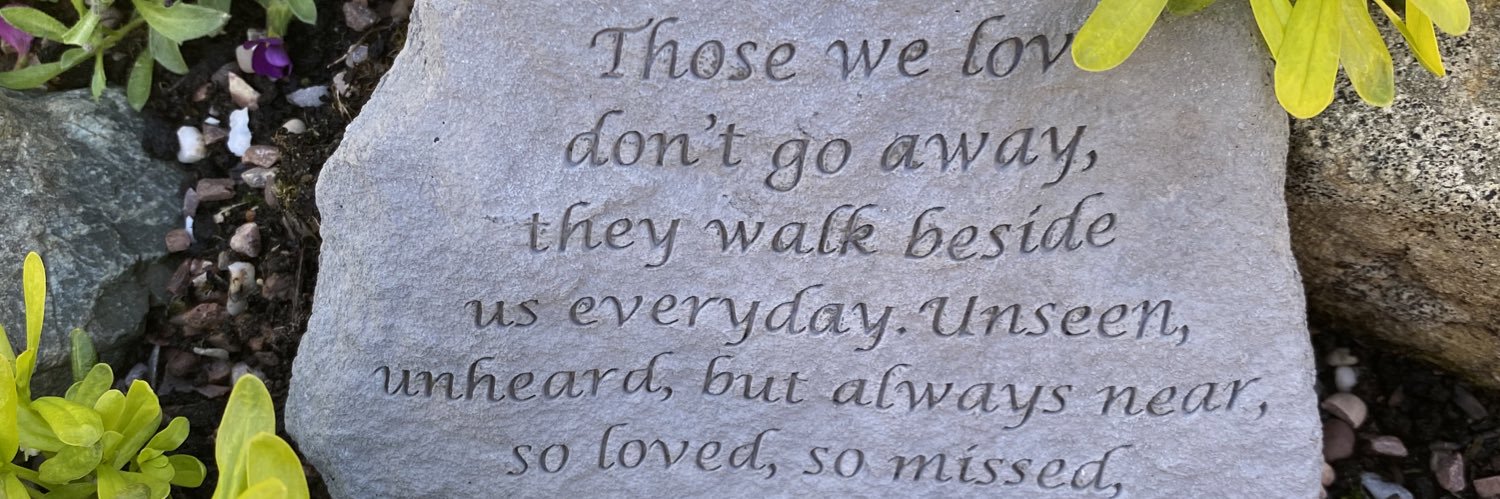 Those we lov
don't go away,
they walk beside
us everyday. Unseen,
unheard, but always near,
so loved, so missed,